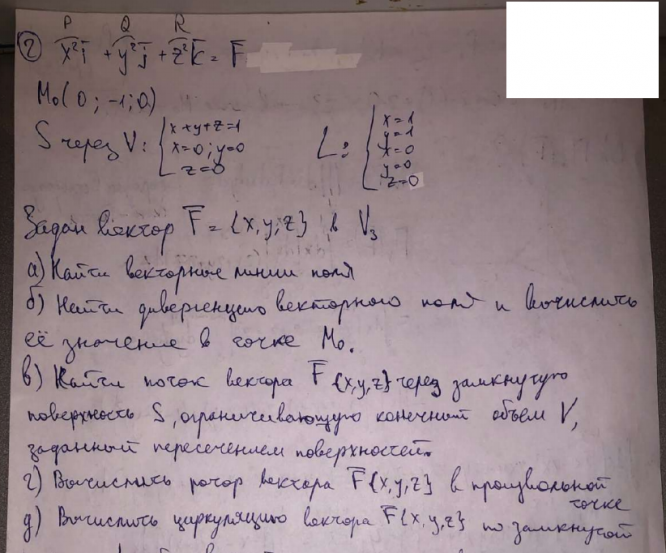 P Q R
② x²i̅ + y²j̅ + z²k̅ = F̅
M₀(0; -1; 0)
S через V: { x+y+z=1
x=0; y=0
z=0
L: { x=1
y=1
x=0
y=0
z=0
Задан вектор F̅ = {x,y;z} в V₃
а) Найти векторные линии поля
б) Найти дивергенцию векторного поля и вычислить
её значение в точке M₀.
в) Найти поток вектора F̅{x,y,z} через замкнутую
поверхность S, ограничивающую конечный объем V,
заданный пересечением поверхностей.
г) Вычислить ротор вектора F̅{x,y,z} в произвольной
точке
д) Вычислить циркуляцию вектора F̅{x,y,z} по замкнутой